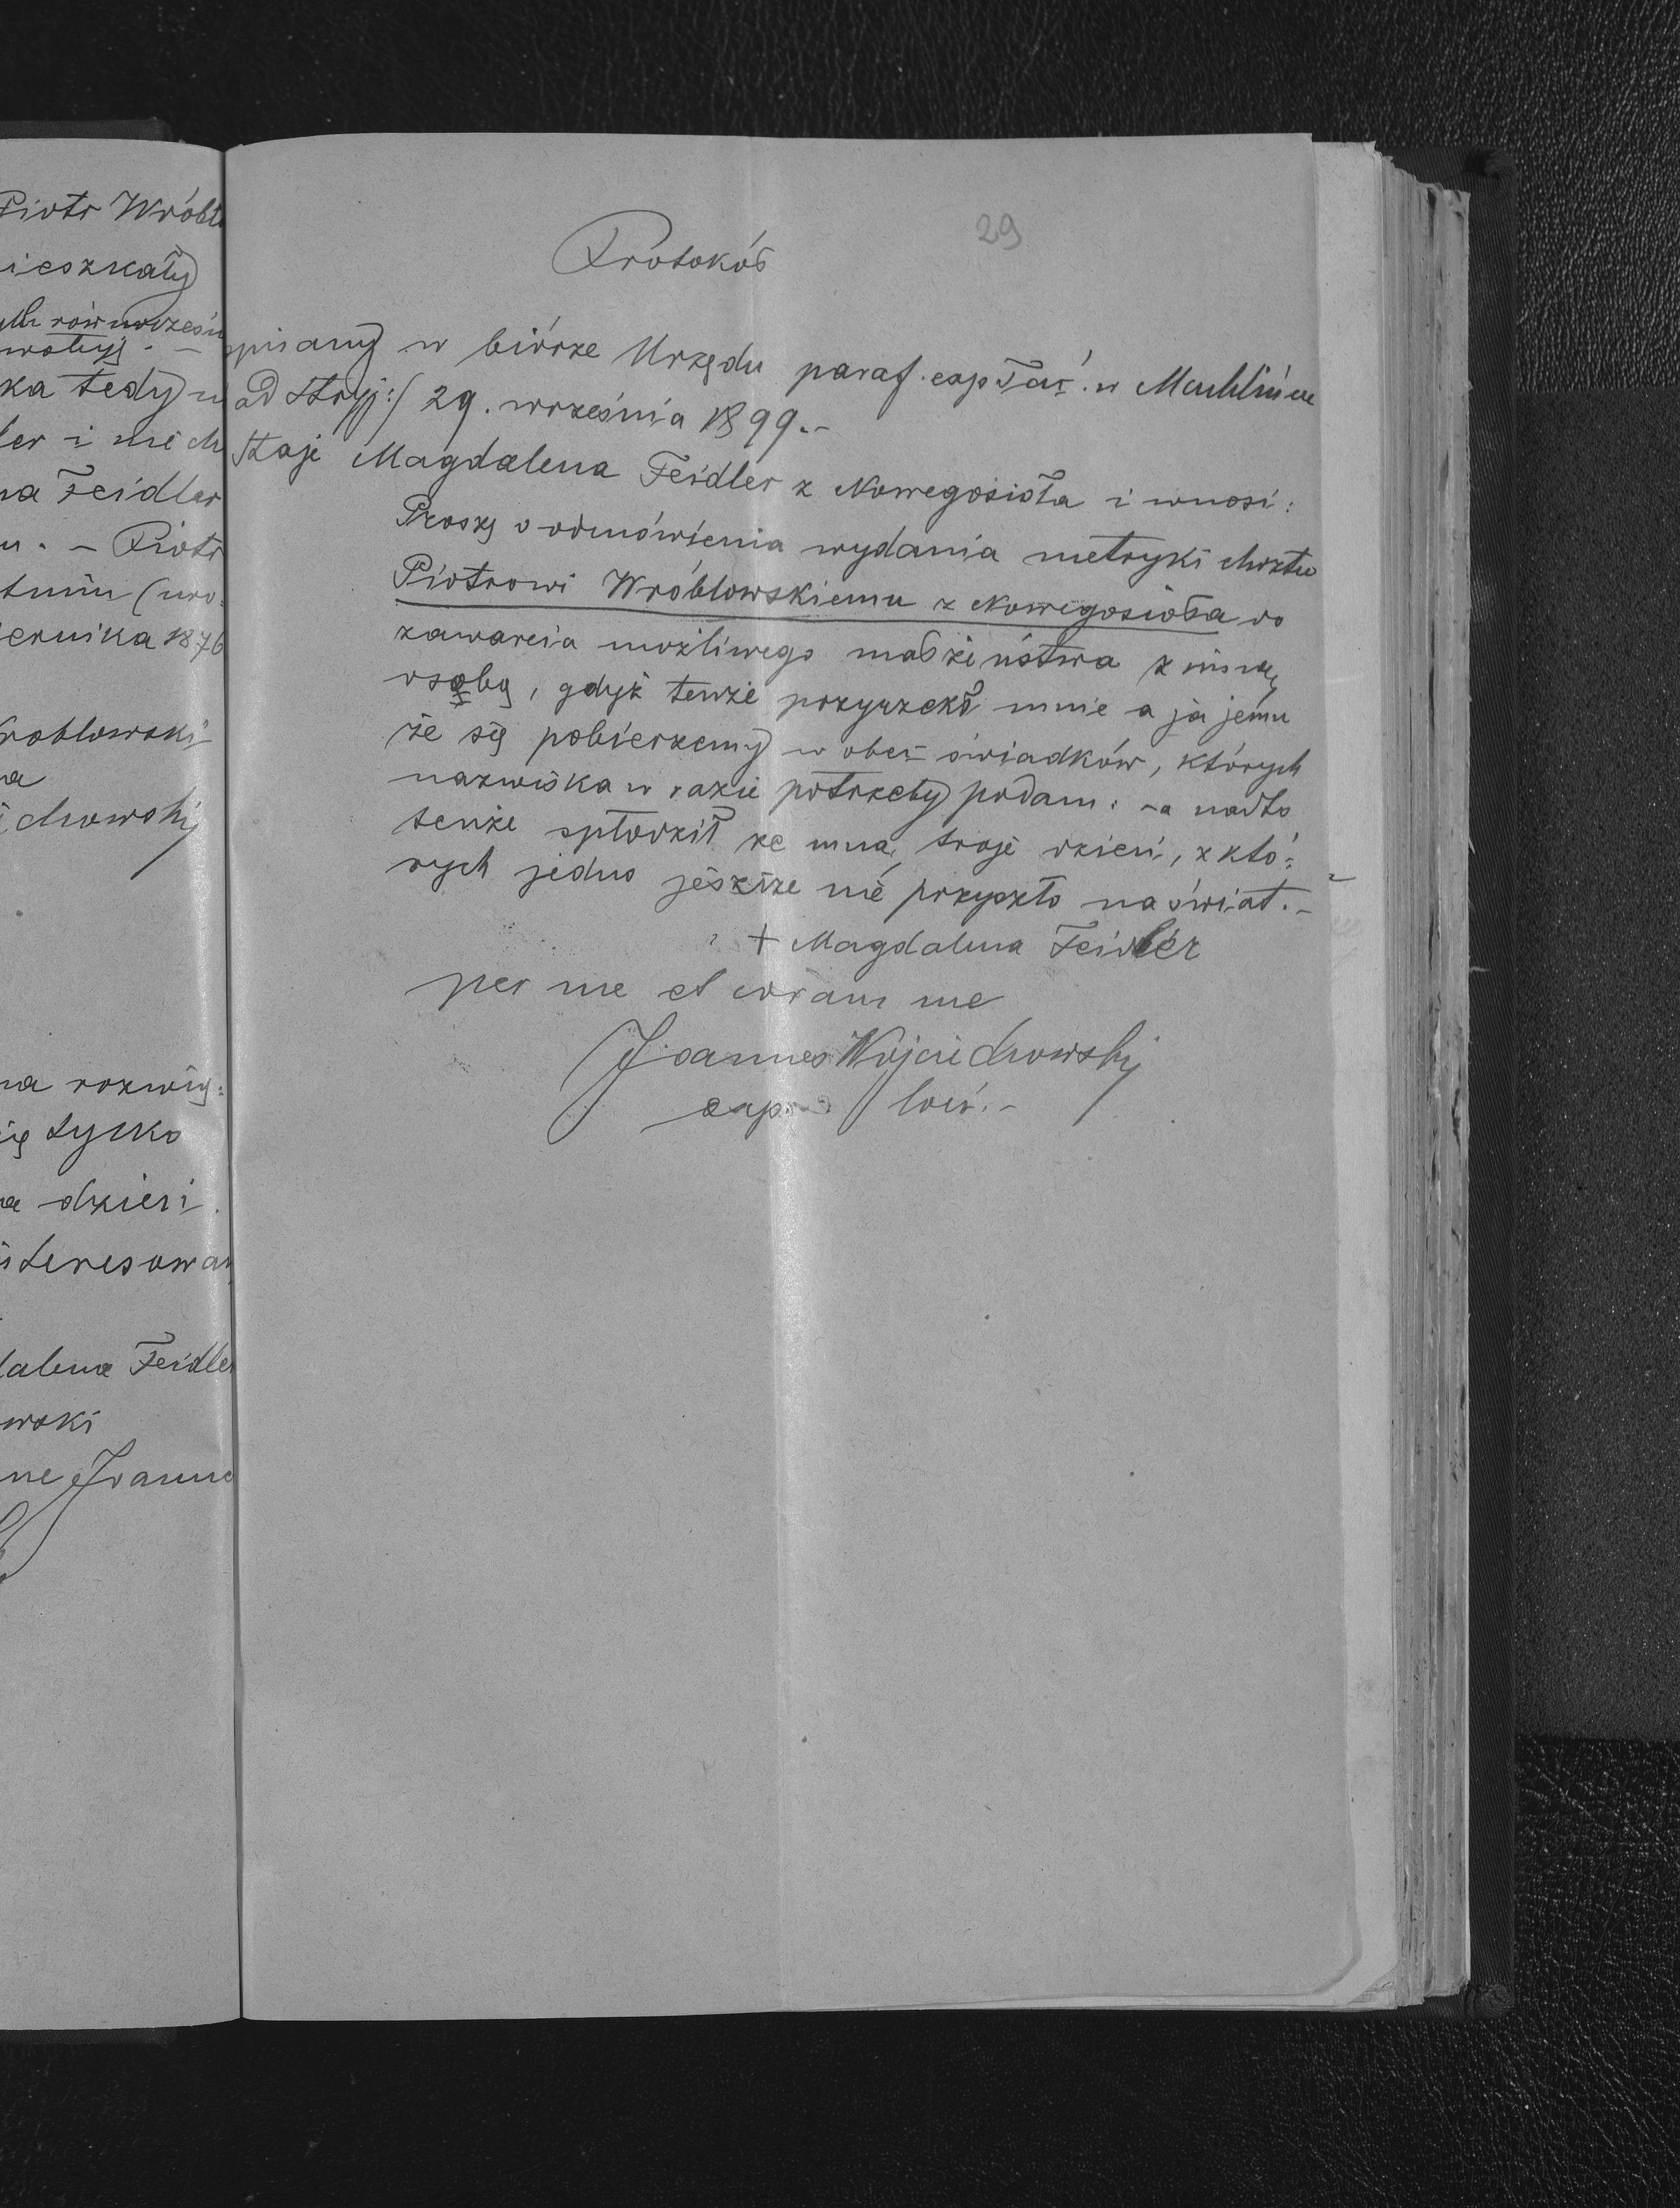 Piotr Wróbl
ieszkały
ych równocześn
woływ. –
ka tedy
ler i niech
na Feidler
u. – Piotr
(uro:
ernika 1876
roblowski
a
chowski
na rozwią:
ię tylko
a dzieci.
interesowa
dalena Feidler
wski
me Joanne
29
Protokół
spisany w biórze Urzędu paraf. exp łać. w Machlińcu
ad Stryj:/ 29. września 1899.–
Staje Magdalena Feidler z Nowegosioła i wnosi:
Proszę o odmówienia wydania metryki chrztu
Piotrowi Wróblowskiemu z Nowegosioła do
zawarcia możliwego małżeństwa z inną
osobą, gdyż tenże przyrzekł mnie a ja jemu
że się pobierzemy w obec świadków, których
nazwiska w razie potrzeby podam. – a nadto
tenże spłodził ze mną, troje dzieci, z któ:
rych jedno jeszcze nie przyszło na świat. –
+ Magdalena Feidler
per me et coram me
Joannes Wojciechowski
exp. loci. –